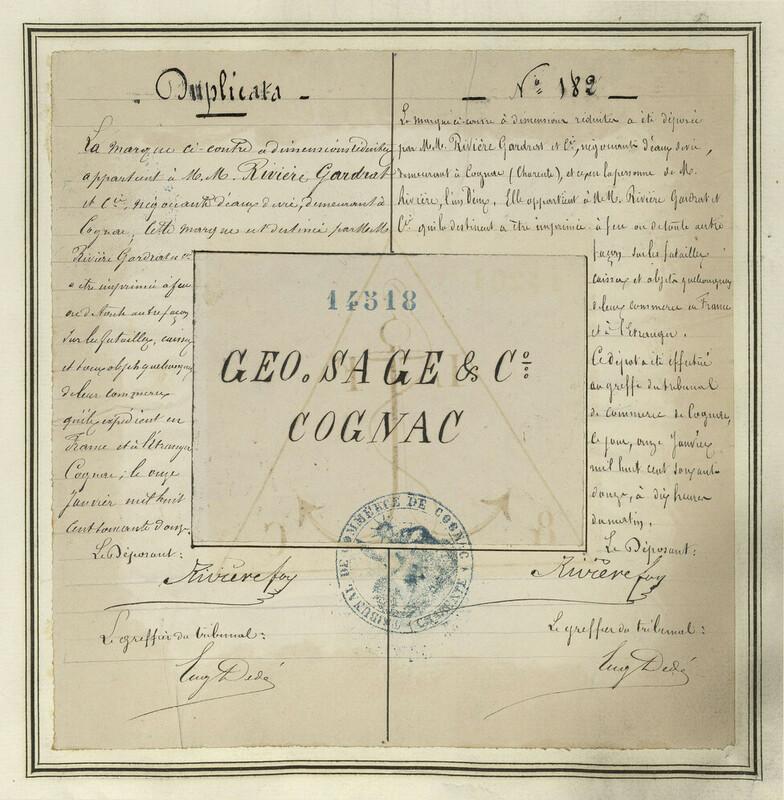 Duplicata
La marque ci-contre a dimensions réduites
appartient à M.M. Rivière Gardrat
et Cie, négociants d'eaux de vie, demeurant à
Cognac, Cette marque est destinée par MM
Rivière Gardrat et Cie
a etre imprimée à feu
ou de toute autre façon
sur les futailles, caisses
et tous objets quelconques
de leur commerce
qu'ils expédient en
France et à l'étranger
Cognac, le onze
Janvier mil huit
cent soixante douze
Le Déposant:
Rivière
Le greffier du tribunal:
Eug Dedé
No 182
La marque ci-contre à dimensions réduites a été déposée
par M.M. Rivière Gardrat et Cie, négociants d'eaux de vie,
demeurant à Cognac (Charente), et ce en la personne de M.
Rivière, l'un d'eux. Elle appartient à MM. Rivière Gardrat et
Cie qui la destinent a être imprimée à feu ou de toute autre
façon sur les futailles
caisses et objets quelconques
de leur commerce en France
et à l'étranger.
Ce dépot a été effectué
au greffe du tribunal
de commerce de Cognac,
ce jour, onze Janvier
mil huit cent soixante-
douze, à dix heures
du matin.
Le Déposant:
Rivière
Le greffier du tribunal:
Eug Dedé
14518
GEO. SAGE & Co:
COGNAC
TRIBUNAL DE COMMERCE DE COGNAC (CHARENTE)